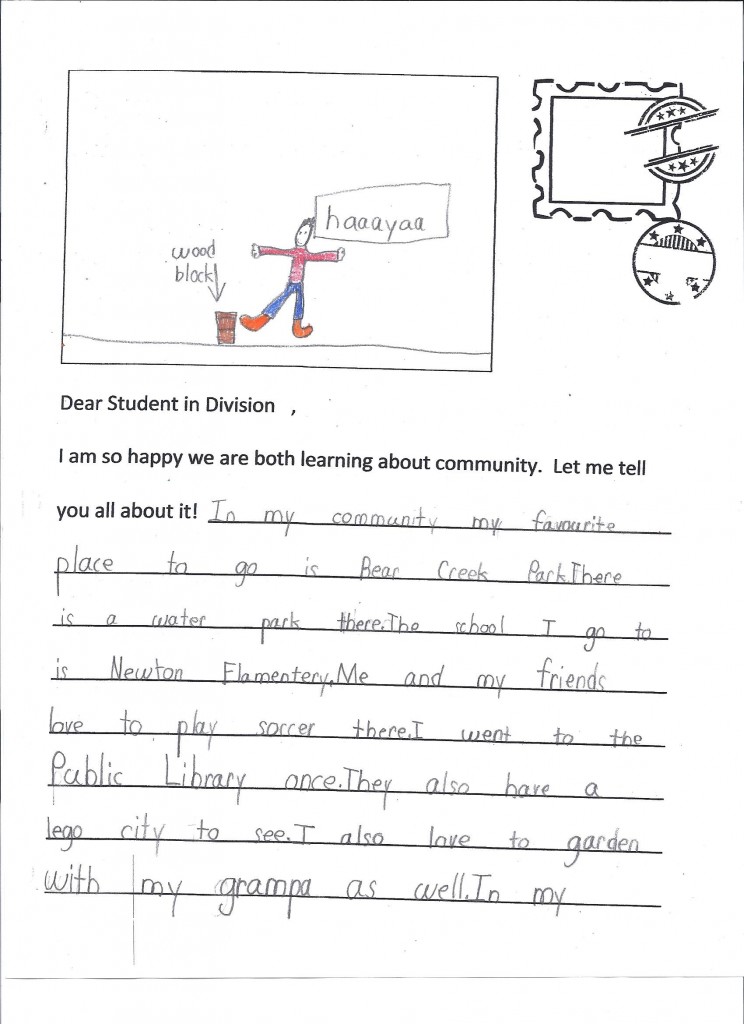 haaayaa
wood
block
Dear Student in Division ,
I am so happy we are both learning about community. Let me tell
you all about it! In my community my favourite
place to go is Bear Creek Park.There
is a water park there.The school I go to
is Newton Elamentery.Me and my friends
love to play soccer there.I went to the
Public Library once.They also have a
lego city to see.I also love to garden
with my grampa as well.In my